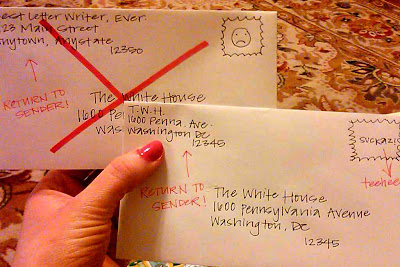 est Letter Writer, Ever.
23 Main Street
nytown, Anystate
12350
RETURN TO
SENDER!
The White House
1600 Pe
Was
T.W.H.
1600 Penna. Ave.
Washington DC
12345
RETURN TO
SENDER!
The White House
1600 Pennsylvania Avenue
Washington, DC
12345
teehee